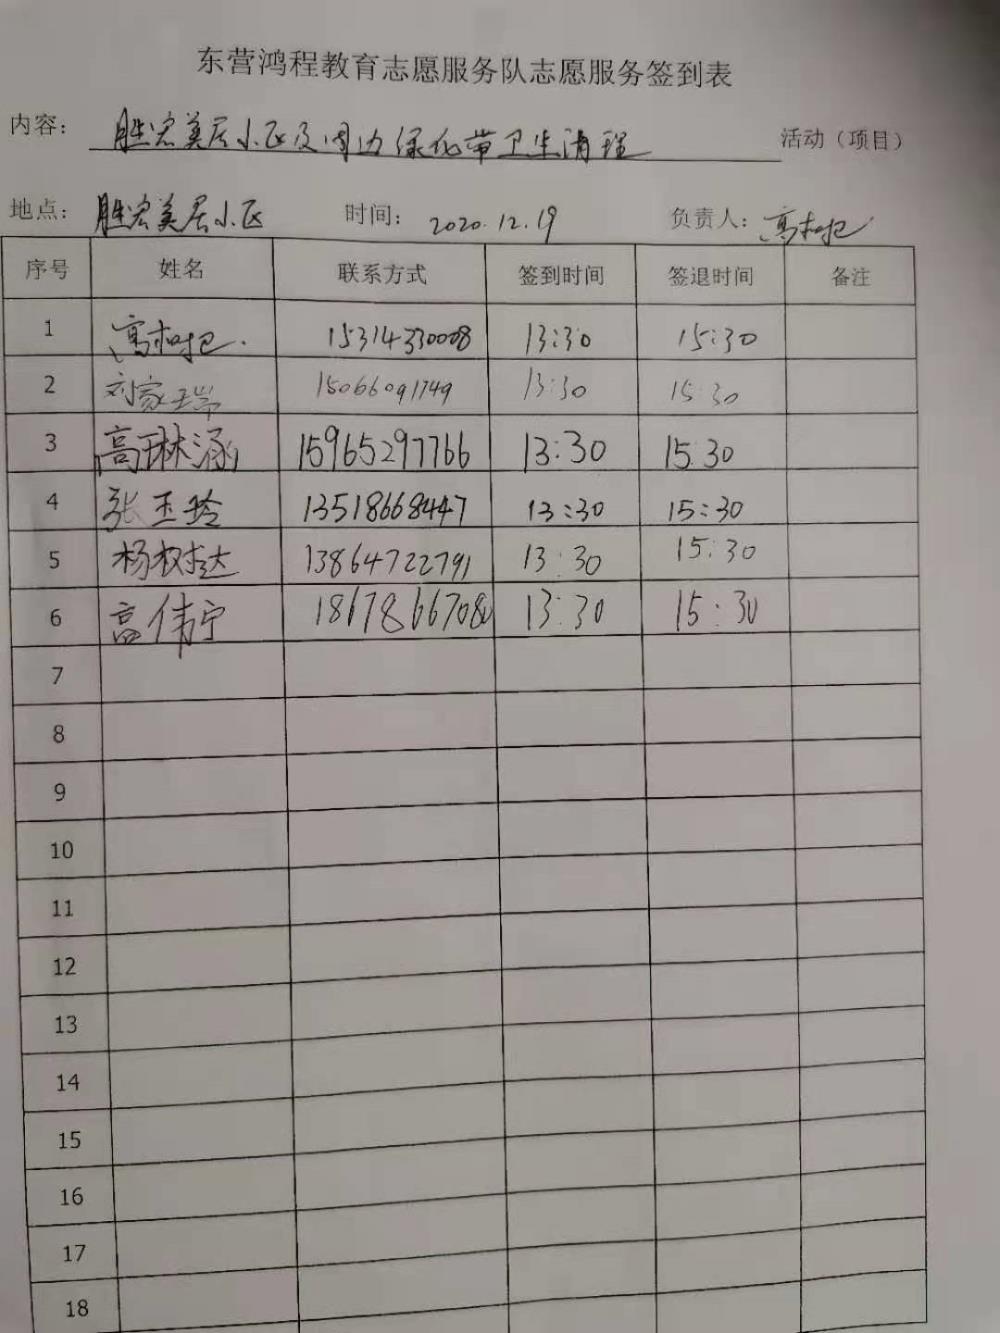 东营鸿程教育志愿服务队志愿服务签到表
内容： 胜宏美居小区及周边绿化带卫生清理 活动（项目）
地点： 胜宏美居小区 时间： 2020.12.19 负责人： 高
序号 姓名 联系方式 签到时间 签退时间 备注
1 高 15314330008 13:30 15:30
2 刘家瑞 15066091749 13:30 15:30
3 高琳涵 15965297766 13:30 15:30
4 张玉玲 13518668447 13:30 15:30
5 杨树达 13864722791 13:30 15:30
6 高伟宁 13:30 15:30
7
8
9
10
11
12
13
14
15
16
17
18